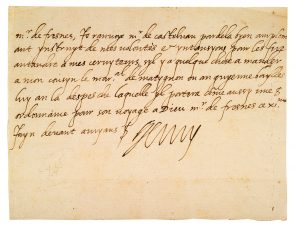 mr de fresnes, Je renvoye mr de castelnau pardela byen amplem
ant ynstruyt de mes volontes & yntansyons pour les fere
antandre a mes servyteurs, syl y a quelque chose a mander
a mon cousyn le maral de matygnon ou an guyenne baylles
luy an la despesche laquelle yl portera come aussy une
ordonnance pour son voyage a Dieu mr de fresnes ce xime
Juyn devant amyans
Henry